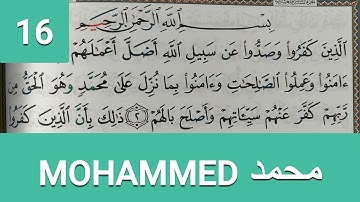 16
بِسْمِ اللَّهِ الرَّحْمَٰنِ الرَّحِيمِ
الَّذِينَ كَفَرُوا وَصَدُّوا عَن سَبِيلِ اللَّهِ أَضَلَّ أَعْمَٰلَهُمْ
ءَامَنُوا وَعَمِلُوا الصَّٰلِحَٰتِ وَءَامَنُوا بِمَا نُزِّلَ عَلَىٰ مُحَمَّدٍ وَهُوَ الْحَقُّ مِن
رَّبِّهِمْ كَفَّرَ عَنْهُمْ سَيِّـَٔاتِهِمْ وَأَصْلَحَ بَالَهُمْ ٢ ذَٰلِكَ بِأَنَّ الَّذِينَ كَفَرُوا
MOHAMMED محمد